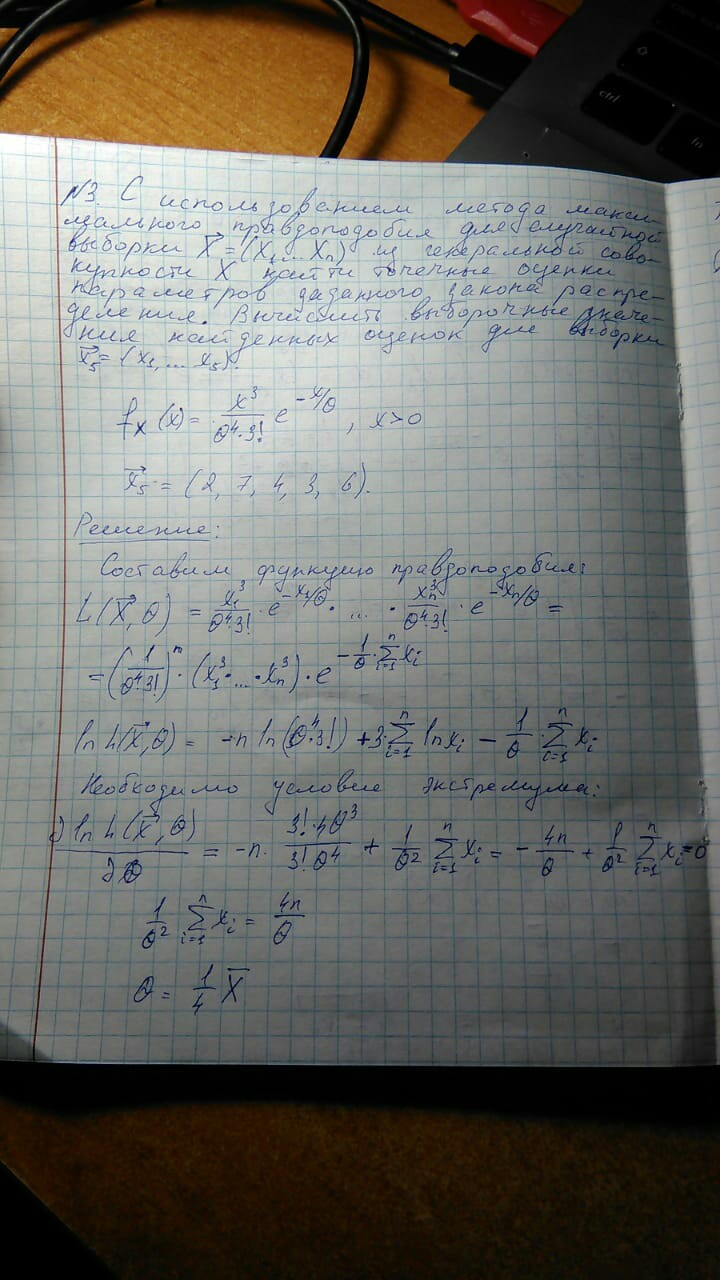 №3. С использованием метода макси-
мального правдоподобия для случайной
выборки X⃗ = (X₁,... Xₙ) из генеральной сово-
купности X найти точечные оценки
параметров заданного закона распре-
деления. Вычислить выборочные значе-
ния найденных оценок для выборки
x⃗₅ = (x₁, ... x₅).
f_X(x) = x³/(θ⁴·3!) e^(-x/θ), x>0
x⃗₅ = (2, 7, 4, 3, 6).
Решение:
Составим функцию правдоподобия:
L(X⃗, θ) = x₁³/(θ⁴·3!) · e^(-x₁/θ) · ... · xₙ³/(θ⁴·3!) · e^(-xₙ/θ) =
= (1/(θ⁴·3!))ⁿ · (x₁³·...·xₙ³) · e^(-1/θ · ∑ᵢ₌₁ⁿ xᵢ)
ln L(X⃗, θ) = -n ln(θ⁴·3!) + 3·∑ᵢ₌₁ⁿ ln xᵢ - 1/θ · ∑ᵢ₌₁ⁿ xᵢ
Необходимо условие экстремума:
∂ ln L(X⃗, θ)/∂θ = -n · 3!·4θ³/(3!·θ⁴) + 1/θ² ∑ᵢ₌₁ⁿ xᵢ = - 4n/θ + 1/θ² ∑ᵢ₌₁ⁿ xᵢ = 0
1/θ² ∑ᵢ₌₁ⁿ xᵢ = 4n/θ
θ = 1/4 X̅
ctrl
fn